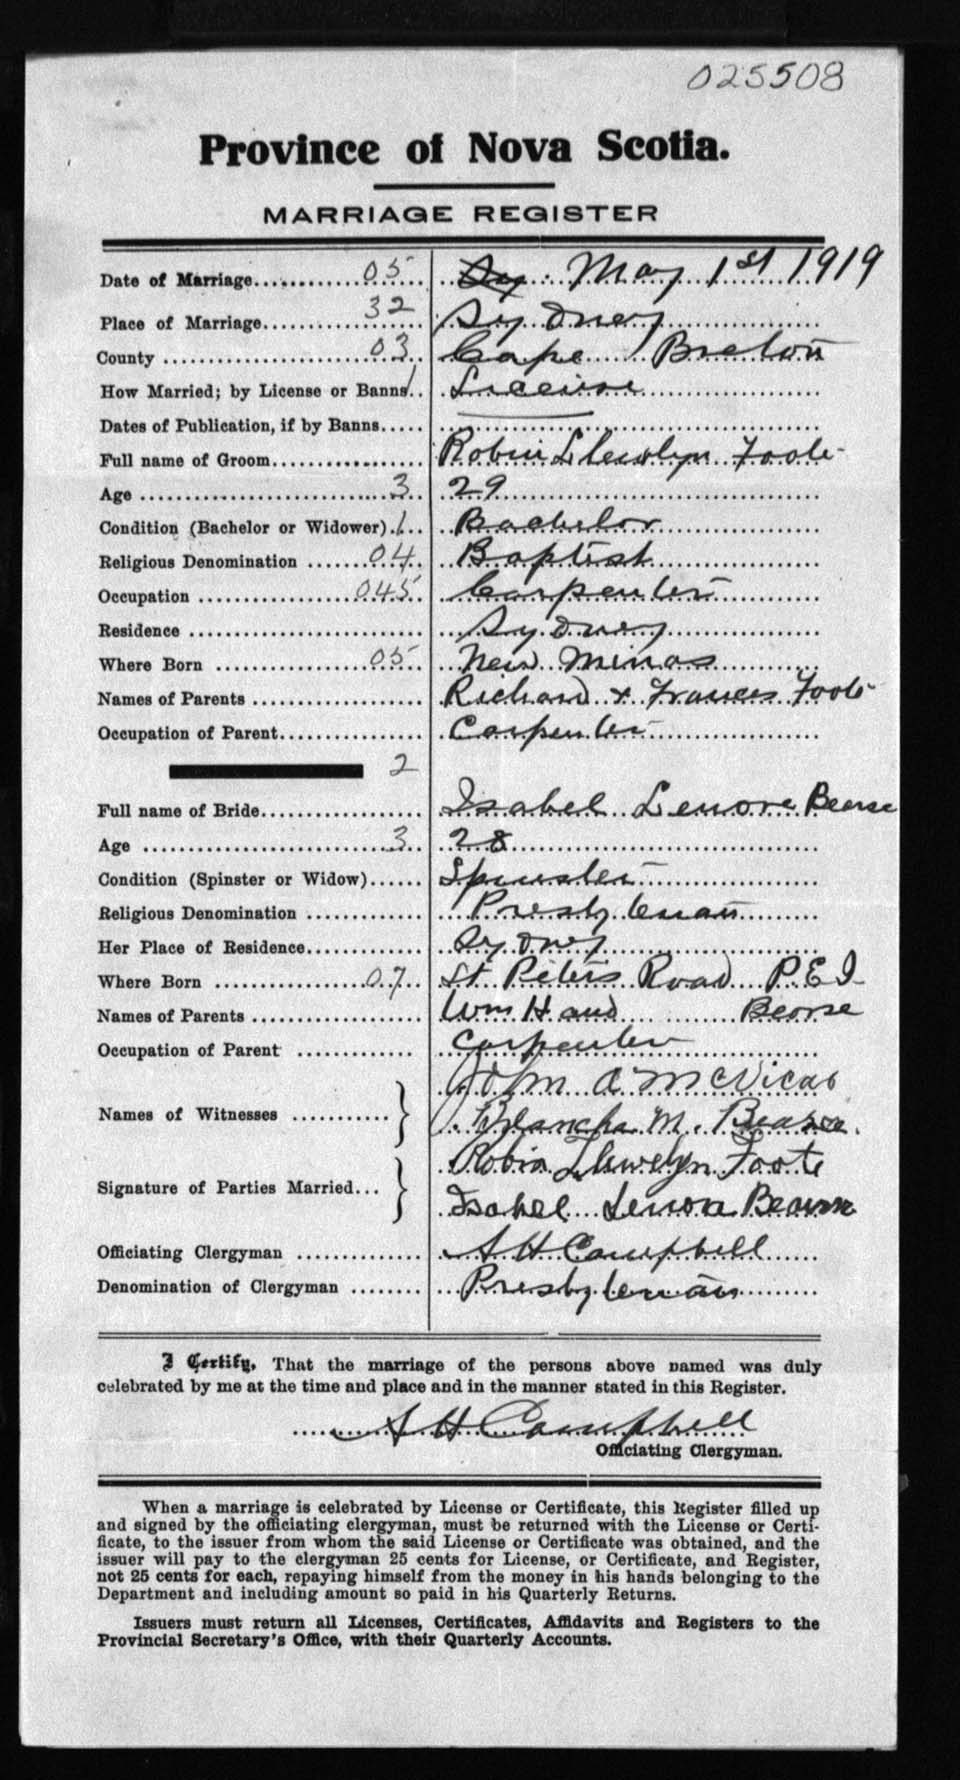 025508
Province of Nova Scotia.
MARRIAGE REGISTER
Date of Marriage 05 May 1st 1919
Place of Marriage 32 Sydney
County 03 Cape Breton
How Married; by License or Banns 1 License
Dates of Publication, if by Banns
Full name of Groom Robin Llewlyn Foote
Age 3 29
Condition (Bachelor or Widower) 1 Bachelor
Religious Denomination 04 Baptist
Occupation 045 Carpenter
Residence Sydney
Where Born 05 New Minas
Names of Parents Richard & Frances Foote
Occupation of Parent Carpenter
2
Full name of Bride Isabel Lenore Bearse
Age 3 28
Condition (Spinster or Widow) Spinster
Religious Denomination Presbyterian
Her Place of Residence Sydney
Where Born 07 St Peters Road P.E.I
Names of Parents Wm H and Bearse
Occupation of Parent Carpenter
Names of Witnesses John A McVicar
Blanche M. Bearse
Signature of Parties Married Robin Llewelyn Foote
Isabel Lenora Bearse
Officiating Clergyman A H Campbell
Denomination of Clergyman Presbyterian
I Certify, That the marriage of the persons above named was duly
celebrated by me at the time and place and in the manner stated in this Register.
A H Campbell
Officiating Clergyman.
When a marriage is celebrated by License or Certificate, this Register filled up
and signed by the officiating clergyman, must be returned with the License or Certi-
ficate, to the issuer from whom the said License or Certificate was obtained, and the
issuer will pay to the clergyman 25 cents for License, or Certificate, and Register,
not 25 cents for each, repaying himself from the money in his hands belonging to the
Department and including amount so paid in his Quarterly Returns.
Issuers must return all Licenses, Certificates, Affidavits and Registers to the
Provincial Secretary's Office, with their Quarterly Accounts.